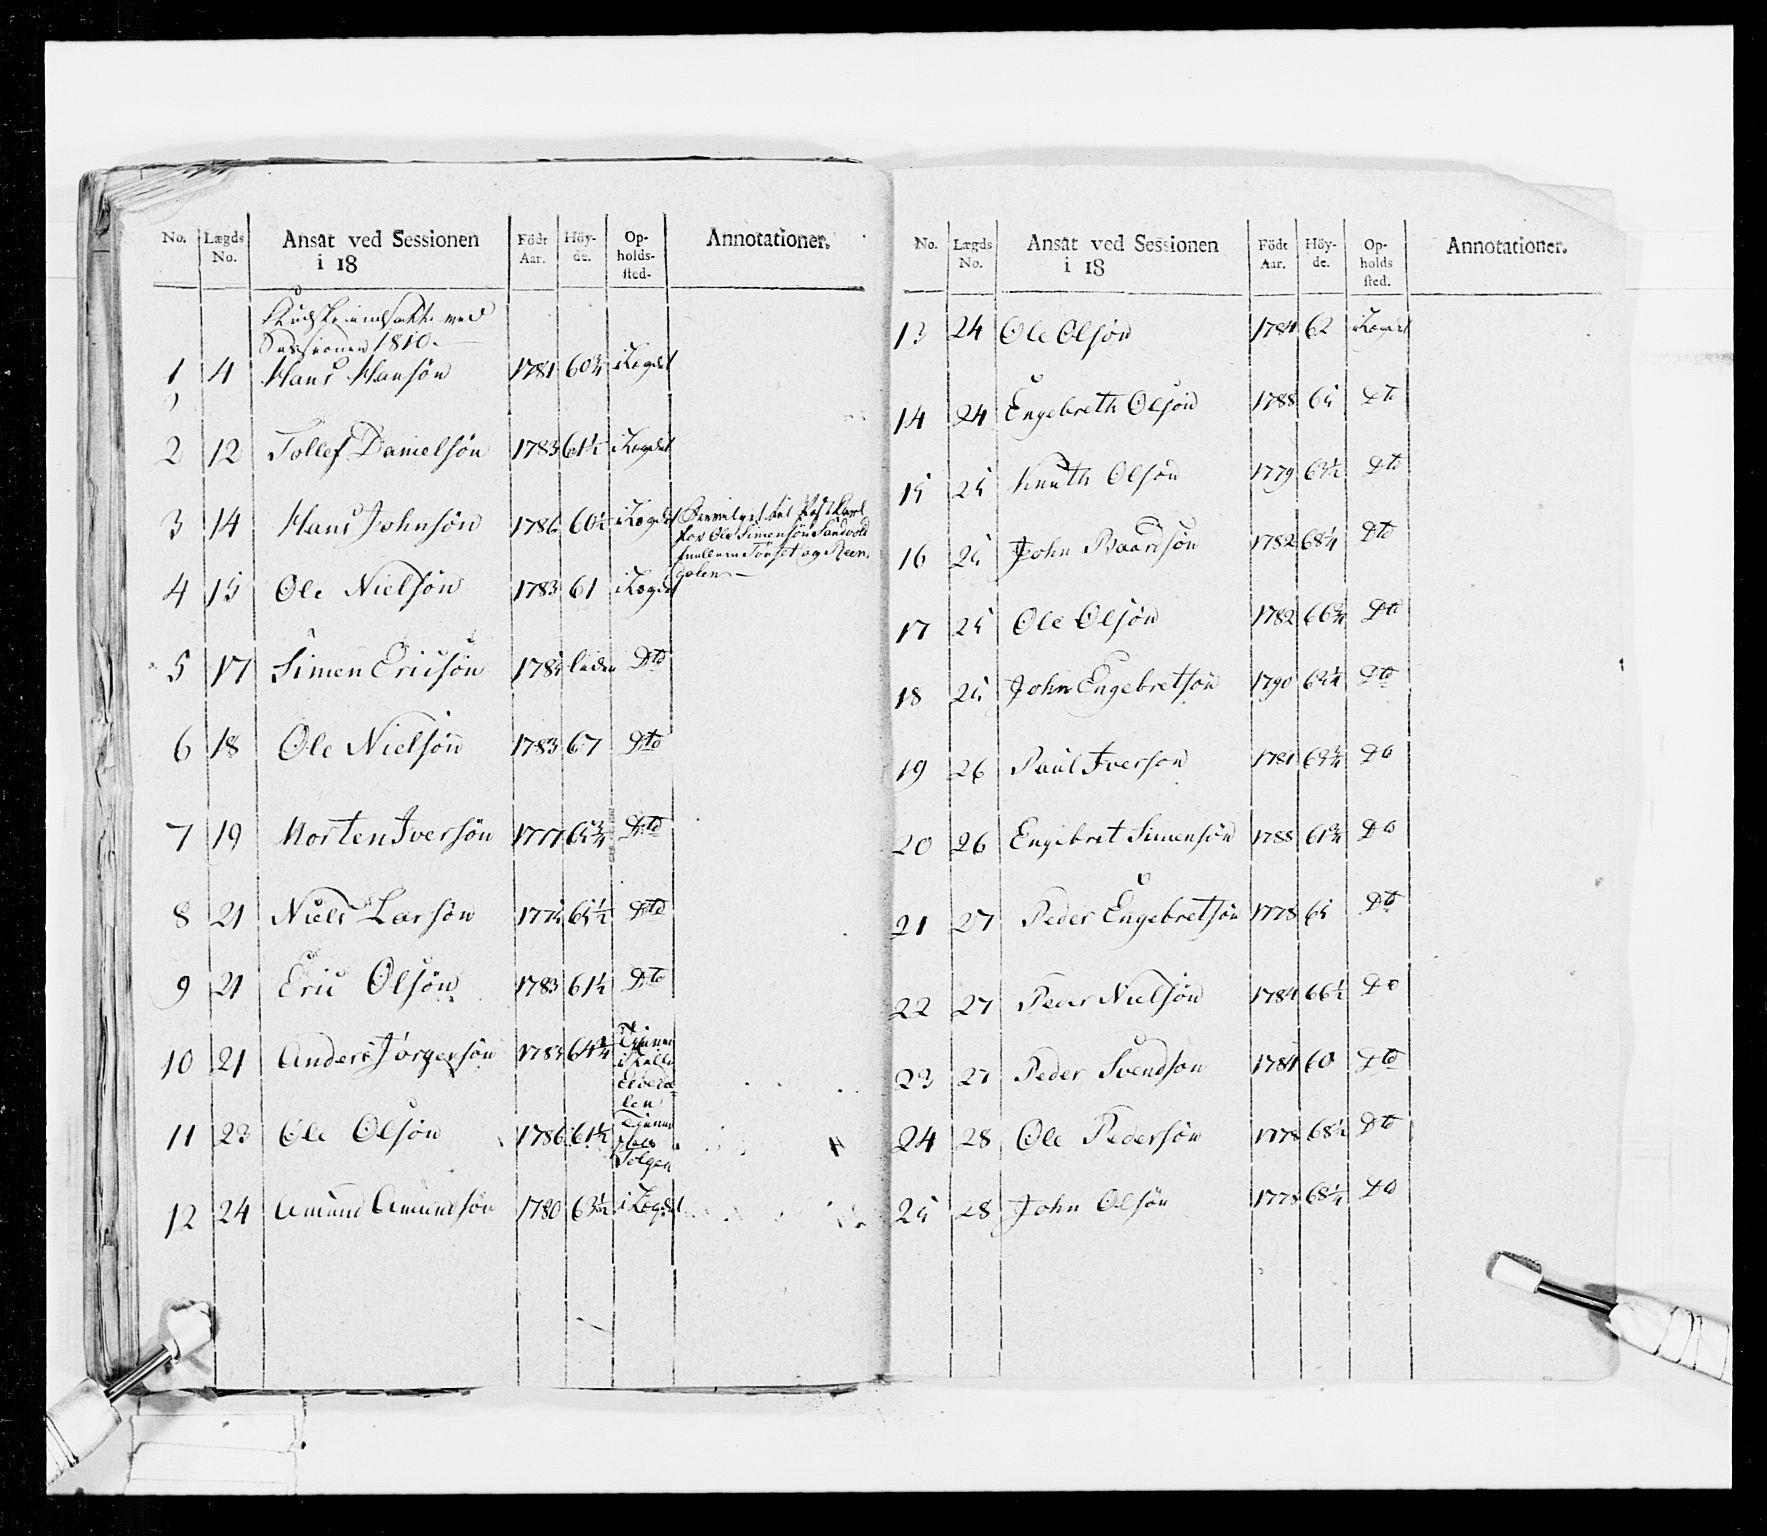 No. Lægds No. Ansat ved Sessionen i 18 Födt Aar. Höyde. Opholdssted. Annotationer.
ved
Sessionen 1810.
1 4 Hans Hansön 1781 60¾ i Lægdet
2 12 Tollef Danielsön 1783 61½ i Lægdet
3 14 Hans Johnsön 1786 60½ i Lægdet
til
for Ole Simensön Sandvold
Törset og Reen
dalen
4 15 Ole Nielsön 1783 61 i Lægdet
5 17 Simen Ericsön Dto
6 18 Ole Nielsön 1783 67 Dto
7 19 Morten Iversön 1777 65¾ Dto
8 21 Niels Larsön 1775 65½ Dto
9 21 Eric Olsön 1783 61½ Dto
10 21 Anders Jörgensön 1783 64¾ Tjenner
i
Elverd
len
11 23 Ole Olsön 1786 61½ Tjenner
Tolgen
12 24 Amund Amundsön 1780 63½ i Lægdet
No. Lægds No. Ansat ved Sessionen i 18 Födt Aar. Höyde. Opholdssted. Annotationer.
13 24 Ole Olsön 1784 62 i Lægdet
14 24 Engebreth Olsön 1788 65 Dto
15 25 Knuth Olsön 1779 63½ Dto
16 25 John Baardsön 1782 68¼ Dto
17 25 Ole Olsön 1782 66¾ Dto
18 25 John Engebretsön 1790 Dto
19 26 Paul Iverson 1781 Do
20 26 Engebret Simensön 1788 61¾ Do
21 27 Peder Engebretsön 1778 65 Dto
22 27 Peder Nielsön 1784 66½ Do
23 27 Peder Svendson 1784 60 Dto
24 28 Ole Pedersön 1778 68½ Dto
25 28 John Olsön 1778 68¼ Do